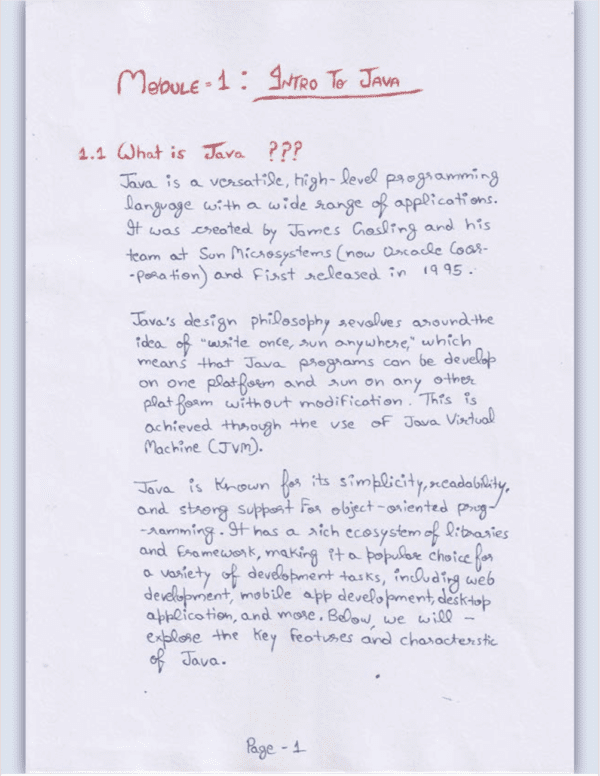 MODULE - 1 : INTRO TO JAVA
1.1 What is Java ???
Java is a versatile, high-level programming
language with a wide range of applications.
It was created by James Gosling and his
team at Sun Microsystems (now Oracale Coor-
-poration) and First released in 1995.
Java's design philosophy revolves around the
idea of "write once, run anywhere," which
means that Java programs can be develop
on one platform and run on any other
platform without modification. This is
achieved through the use of Java Virtual
Machine (JVM).
Java is Known for its simplicity, readability,
and strong support For object-oriented prog-
-ramming. It has a rich ecosystem of libraries
and Framework, making it a popular choice for
a variety of development tasks, including web
development, mobile app development, desktop
application, and more. Below, we will -
explore the Key Features and characterstic
of Java.
Page - 1